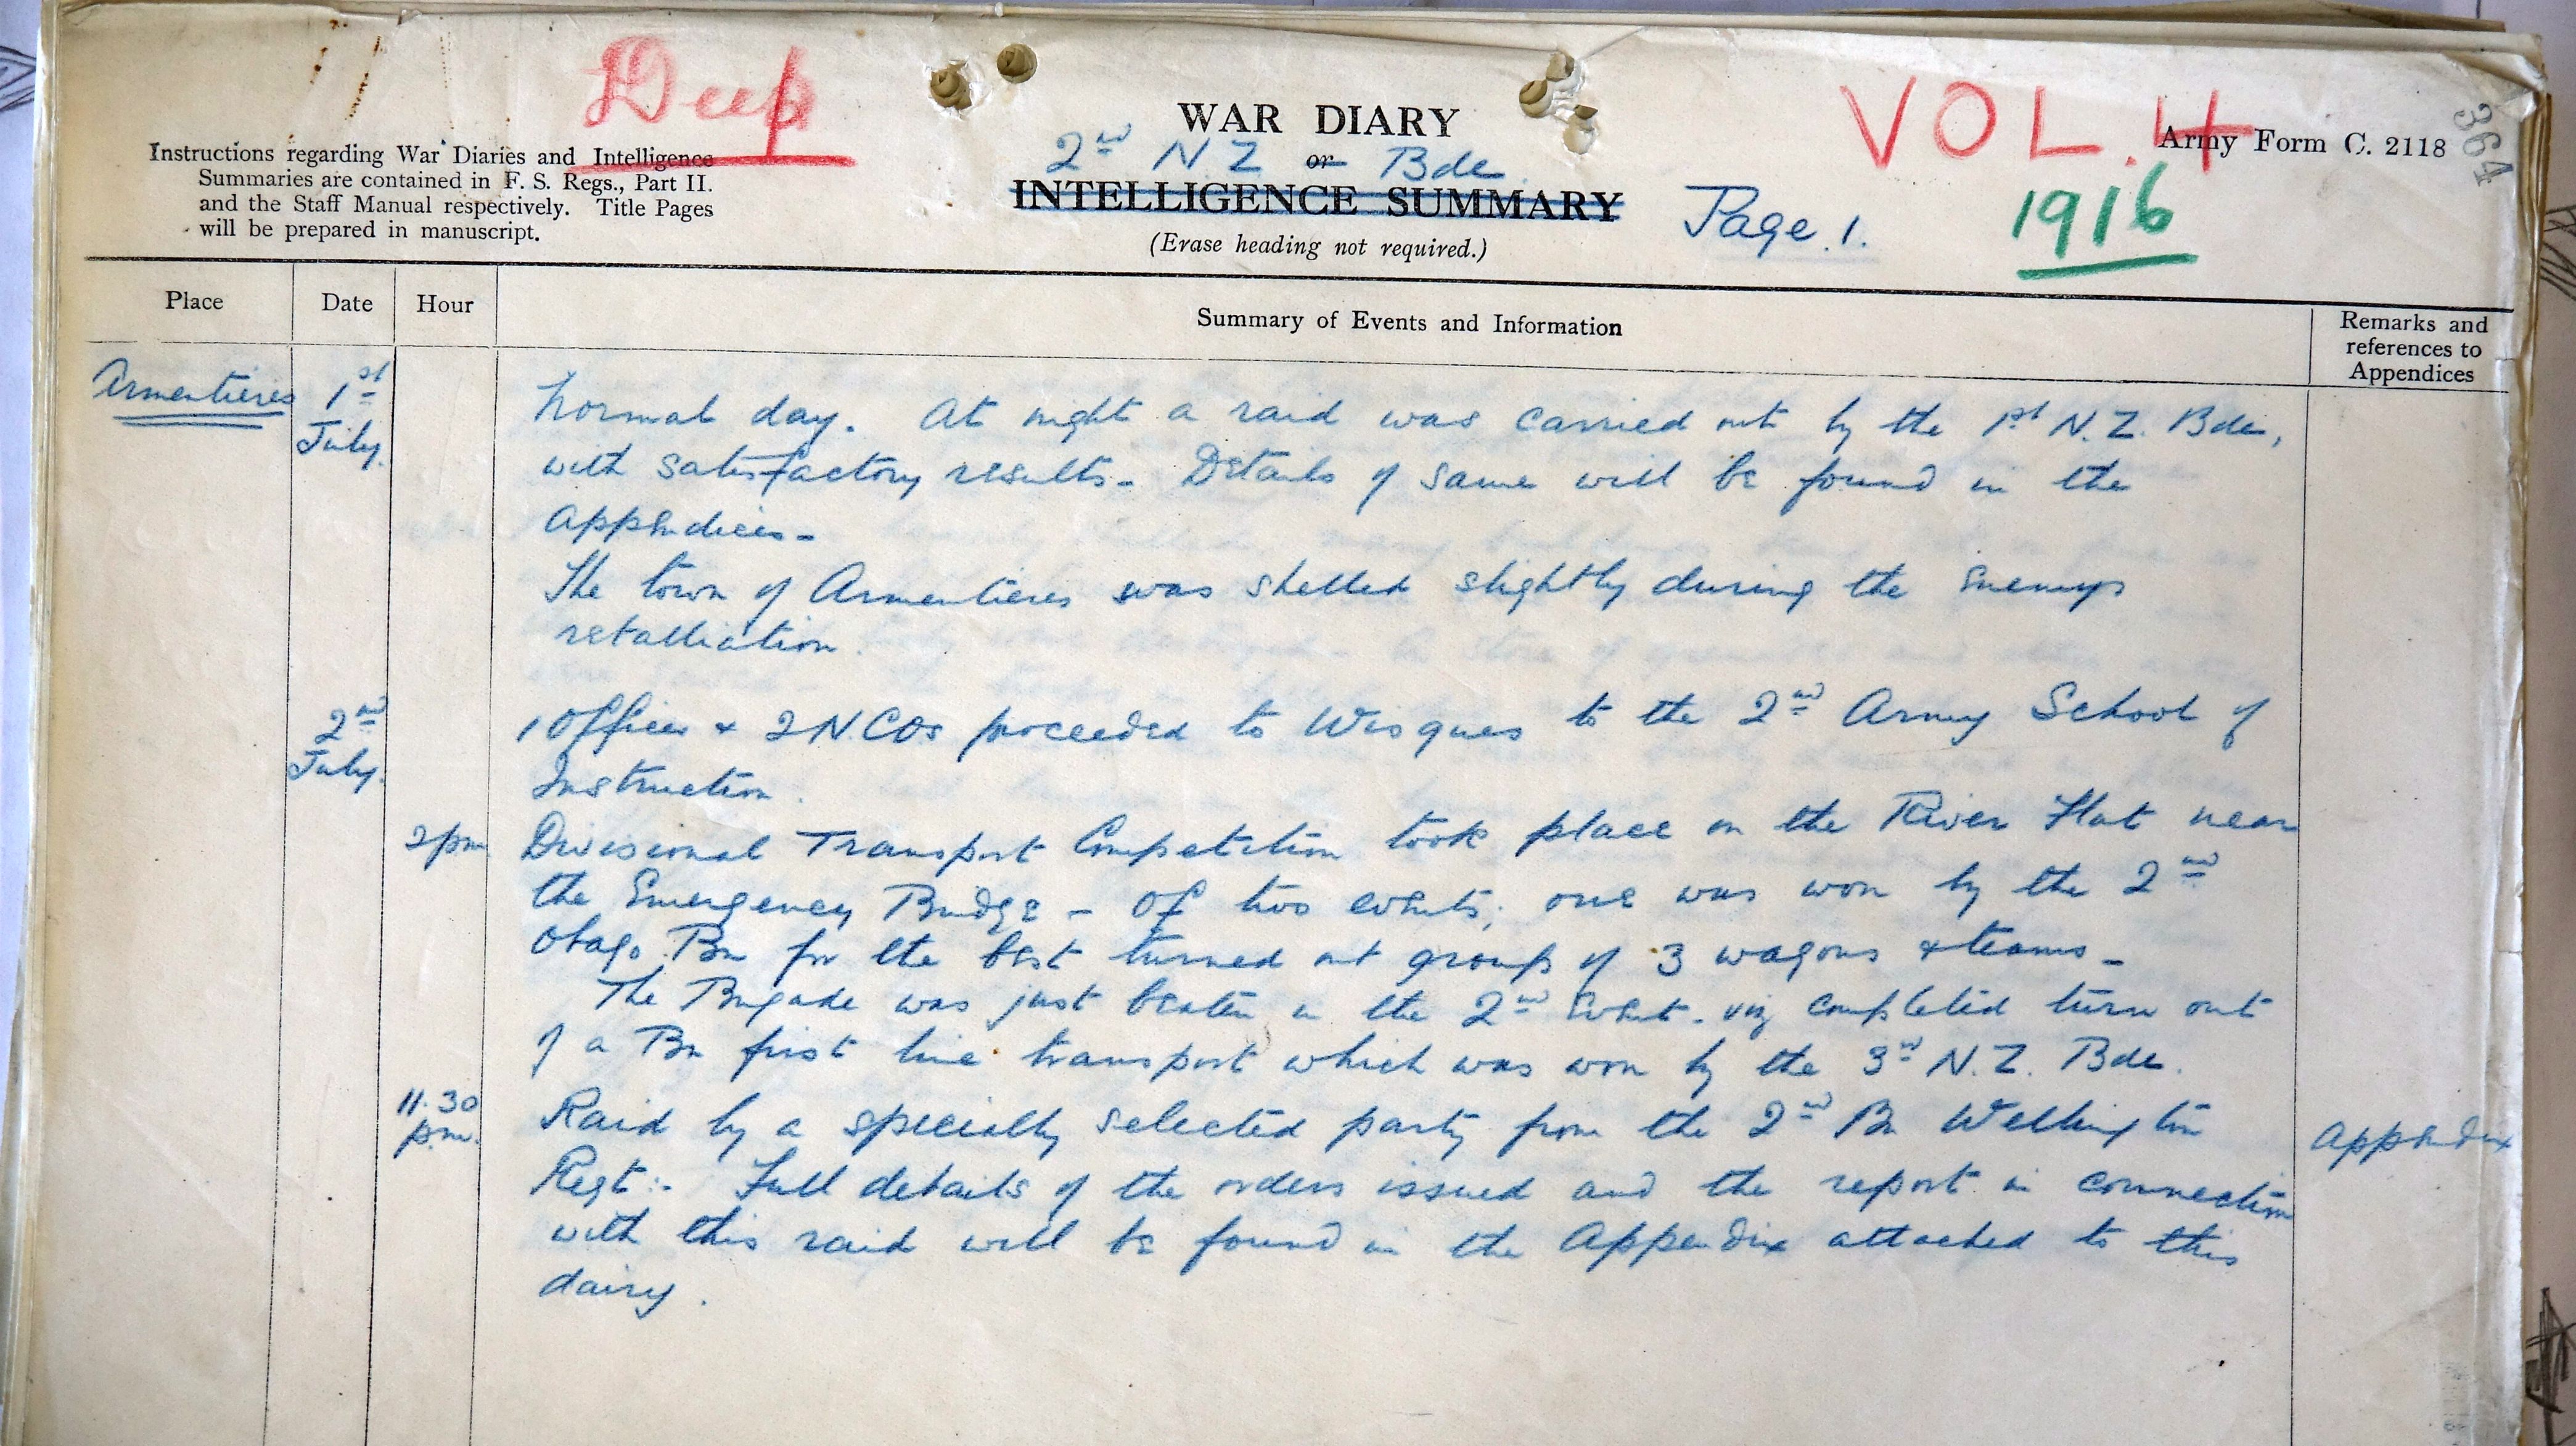 Dup
VOL. 4
1916
364
Army Form C. 2118
WAR DIARY
2nd N Z or Bde
INTELLIGENCE SUMMARY
(Erase heading not required.)
Page 1.
Instructions regarding War Diaries and Intelligence
Summaries are contained in F. S. Regs., Part II.
and the Staff Manual respectively. Title Pages
will be prepared in manuscript.
Place Date Hour Summary of Events and Information Remarks and
references to
Appendices
Armentieres 1st
July.
Normal day. At night a raid was carried out by the 1st N.Z. Bde,
with satisfactory results - Details of same will be found in the
appendices -
The town of Armentieres was shelled slightly during the enemys
retalliation.
2nd
July.
1 Officer & 2 N.COs proceeded to Wisques to the 2nd Army School of
Instruction.
2pm Divisional Transport Competition took place on the River Flat near
the Emergency Bridge - Of two events; one was won by the 2nd
Otago Bn for the best turned out group of 3 wagons & teams -
The Brigade was just beaten in the 2nd Event - viz completed turn out
of a Bn first line transport which was won by the 3rd N.Z. Bde.
11.30
pm.
Raid by a specially selected party from the 2nd Bn Wellington Appendix
Regt:- Full details of the orders issued and the report in connection
with this raid will be found in the Appendix attached to this
dairy.